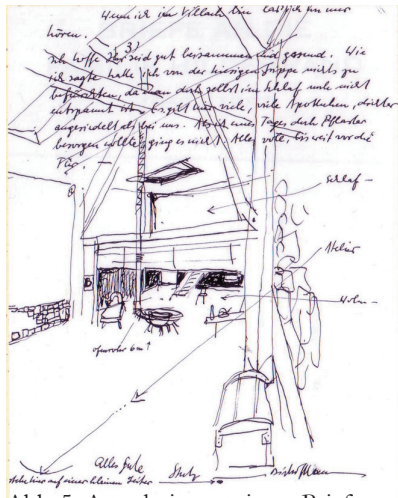 Wenn ich in Villach bin laß' ich von mir
hören.
Ich hoffe Ihr 3) seid gut beisammen und gesund. Wie
ich sagte habe ich von der hiesigen Grippe nichts zu
befürchten, da man dort selbst im Schlaf noch nicht
entspannt ist. Es gibt hier viele, viele Apotheken, dichter
angesiedelt als bei uns. Als ich eines Tages doch Pflaster
besorgen wollte, ging es nicht. Alles voll, bis weit vor die
Tür. —
Schlaf —
Atelier
Wohn —
Ofenrohr 6m ↑
Alles Gute
stehe hier auf einer kleinen Leiter
Abb. 5: Auszug aus einem Brief